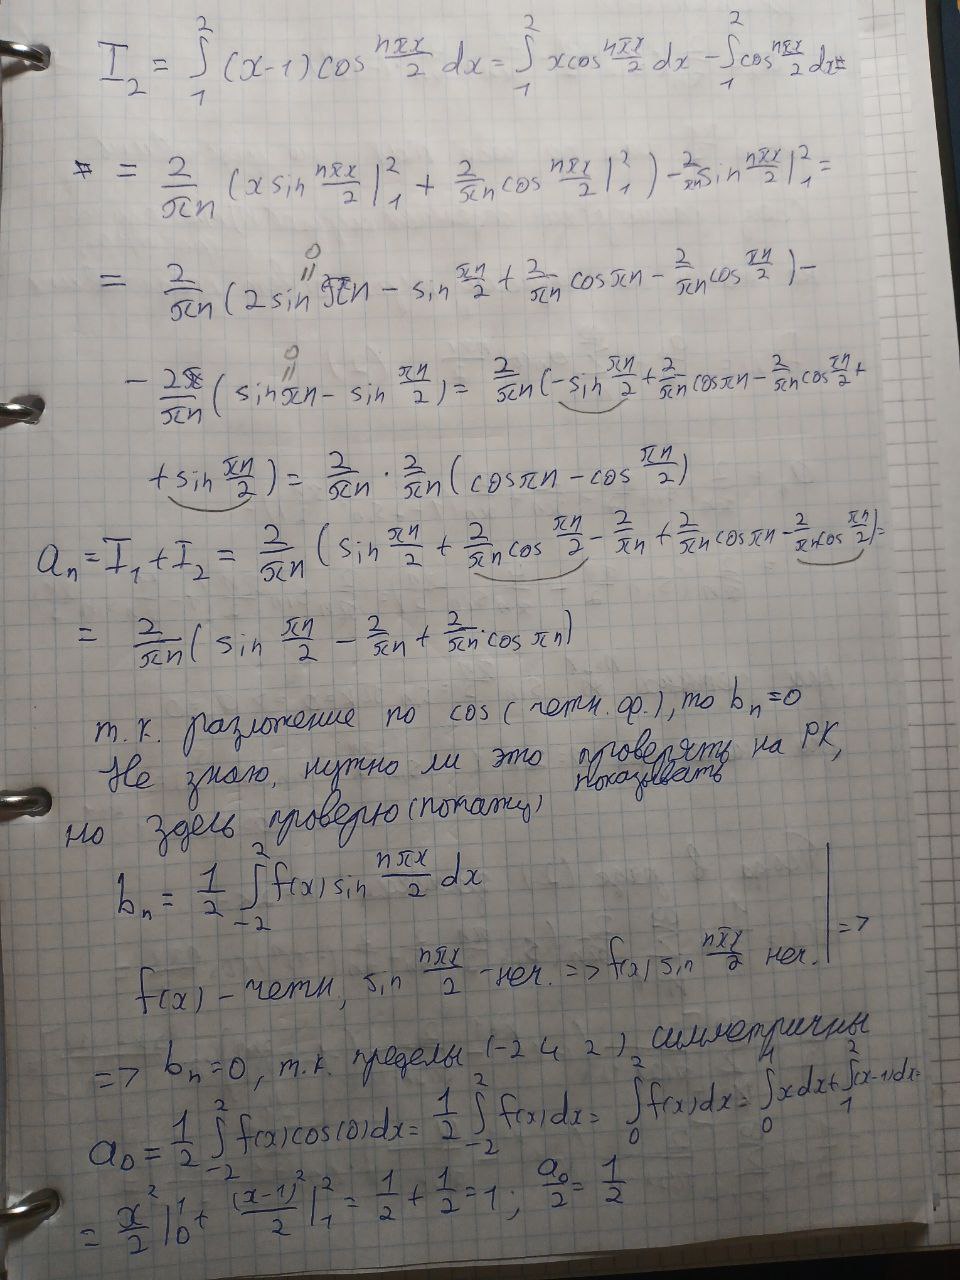 I₂ = ∫₁² (x-1) cos nπx/2 dx = ∫₁² x cos nπx/2 dx - ∫₁² cos nπx/2 dx =
= 2/πn (x sin nπx/2 |₁² + 2/πn cos nπx/2 |₁²) - 2/πn sin nπx/2 |₁² =
= 2/πn (2 sin πn - sin πn/2 + 2/πn cos πn - 2/πn cos πn/2) -
- 2/πn (sin πn - sin πn/2) = 2/πn (- sin πn/2 + 2/πn cos πn - 2/πn cos πn/2 +
+ sin πn/2) = 2/πn · 2/πn (cos πn - cos πn/2)
aₙ = I₁ + I₂ = 2/πn (sin πn/2 + 2/πn cos πn/2 - 2/πn + 2/πn cos πn - 2/πn cos πn/2) =
= 2/πn (sin πn/2 - 2/πn + 2/πn · cos πn)
т.к. разложение по cos (четн. ф.), то bₙ = 0
Не знаю, нужно ли это проверять на РК,
показывать
но здесь проверю (покажу)
bₙ = 1/2 ∫₋₂² f(x) sin nπx/2 dx
f(x) - четн, sin nπx/2 - неч. => f(x) sin nπx/2 неч. | =>
=> bₙ = 0, т.к. пределы (-2 и 2) симметричны
a₀ = 1/2 ∫₋₂² f(x) cos(0) dx = 1/2 ∫₋₂² f(x) dx = ∫₀² f(x) dx = ∫₀¹ x dx + ∫₁² (x-1) dx =
= x²/2 |₀¹ + (x-1)²/2 |₁² = 1/2 + 1/2 = 1; a₀/2 = 1/2